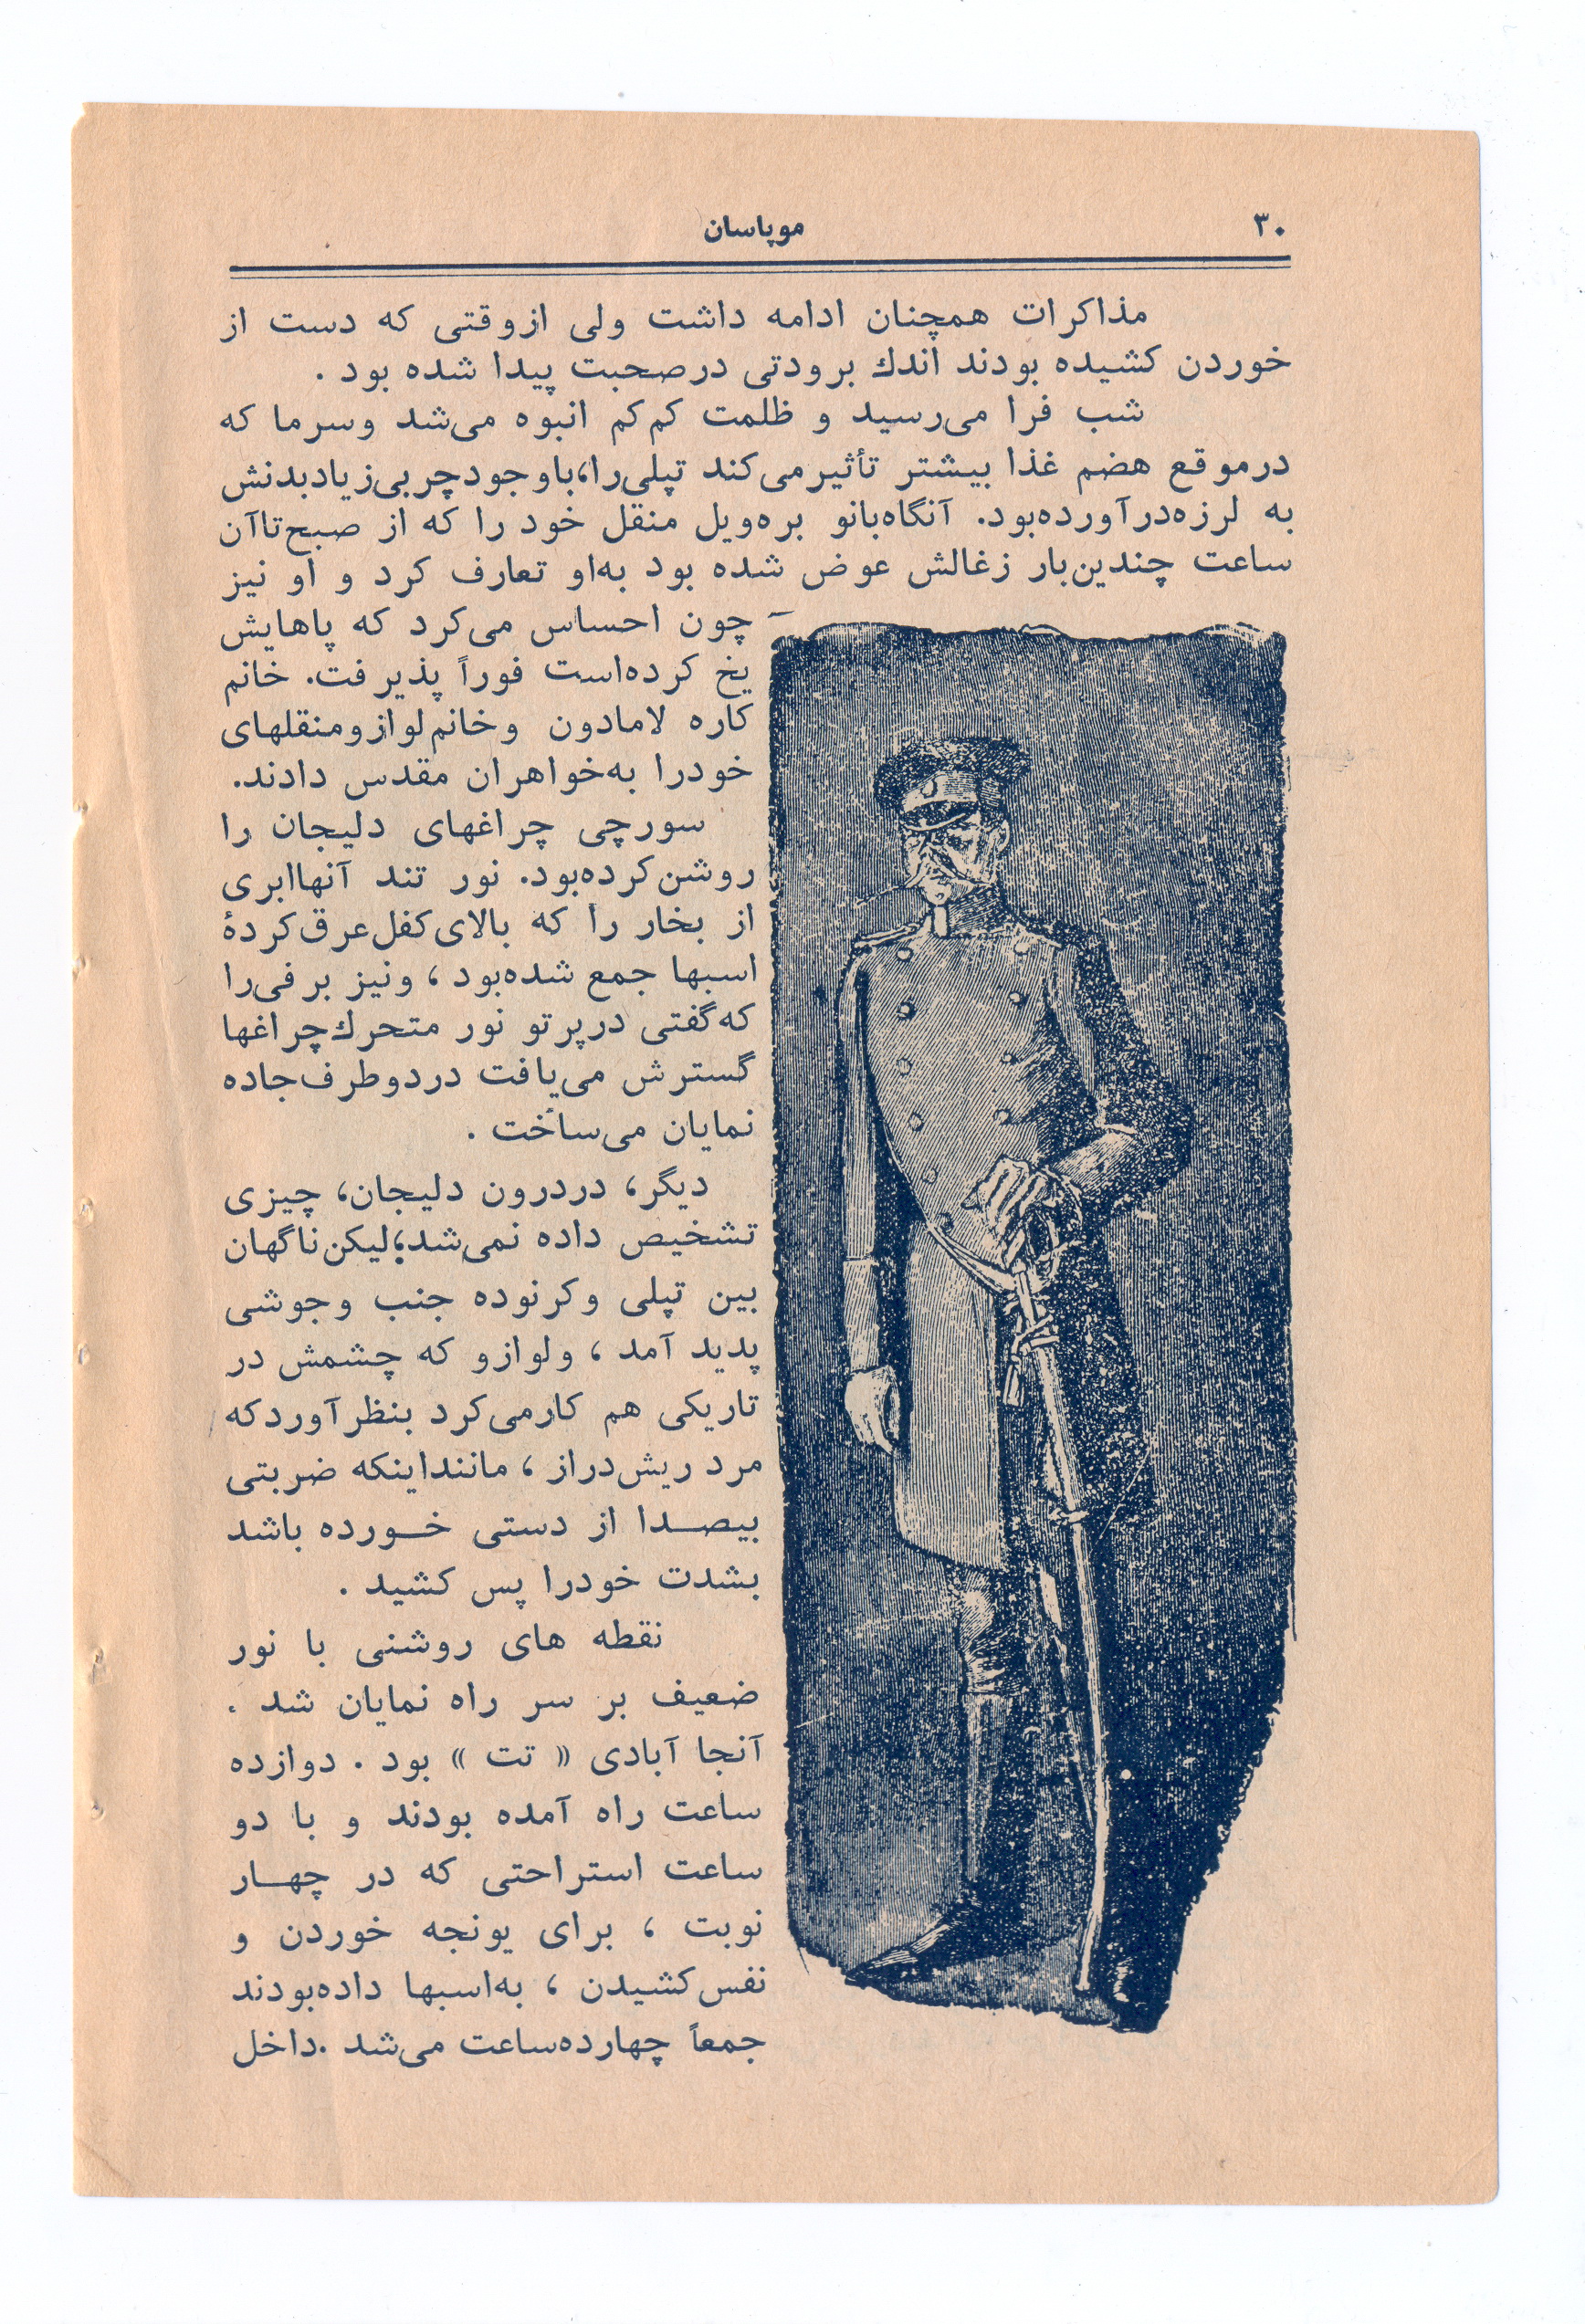 ۳۰
موپاسان
مذاکرات همچنان ادامه داشت ولی ازوقتی که دست از
خوردن کشیده بودند اندك برودتی درصحبت پیدا شده بود .
شب فرا می‌رسید و ظلمت کم‌کم انبوه می‌شد وسرما که
درموقع هضم غذا بیشتر تأثیرمی‌کند تپلی‌را، باوجودچربی‌زیادبدنش
به لرزه‌درآورده‌بود. آنگاه‌بانو بره‌ویل منقل خود را که از صبح‌تاآن
ساعت چندین‌بار زغالش عوض شده بود به‌او تعارف کرد و او نیز
چون احساس می‌کرد که پاهایش
یخ کرده‌است فوراً پذیرفت. خانم
کاره لامادون وخانم‌لوازومنقلهای
خودرا به‌خواهران مقدس دادند.
سورچی چراغهای دلیجان را
روشن‌کرده‌بود. نور تند آنهاابری
از بخار را که بالای‌کفل‌عرق‌کردهٔ
اسبها جمع شده‌بود ، ونیز برفی‌را
که‌گفتی درپرتو نور متحرك‌چراغها
گسترش می‌یافت دردوطرف‌جاده
نمایان می‌ساخت .
دیگر، دردرون دلیجان، چیزی
تشخیص داده نمی‌شد؛لیکن‌ناگهان
بین تپلی وکرنوده جنب وجوشی
پدید آمد ، ولوازو که چشمش در
تاریکی هم کارمی‌کرد بنظرآوردکه
مرد ریش‌دراز ، ماننداینکه ضربتی
بیصدا از دستی خورده باشد
بشدت خودرا پس کشید .
نقطه های روشنی با نور
ضعیف بر سر راه نمایان شد .
آنجا آبادی « تت » بود . دوازده
ساعت راه آمده بودند و با دو
ساعت استراحتی که در چهار
نوبت ، برای یونجه خوردن و
نفس‌کشیدن ، به‌اسبها داده‌بودند
جمعاً چهارده‌ساعت می‌شد .داخل